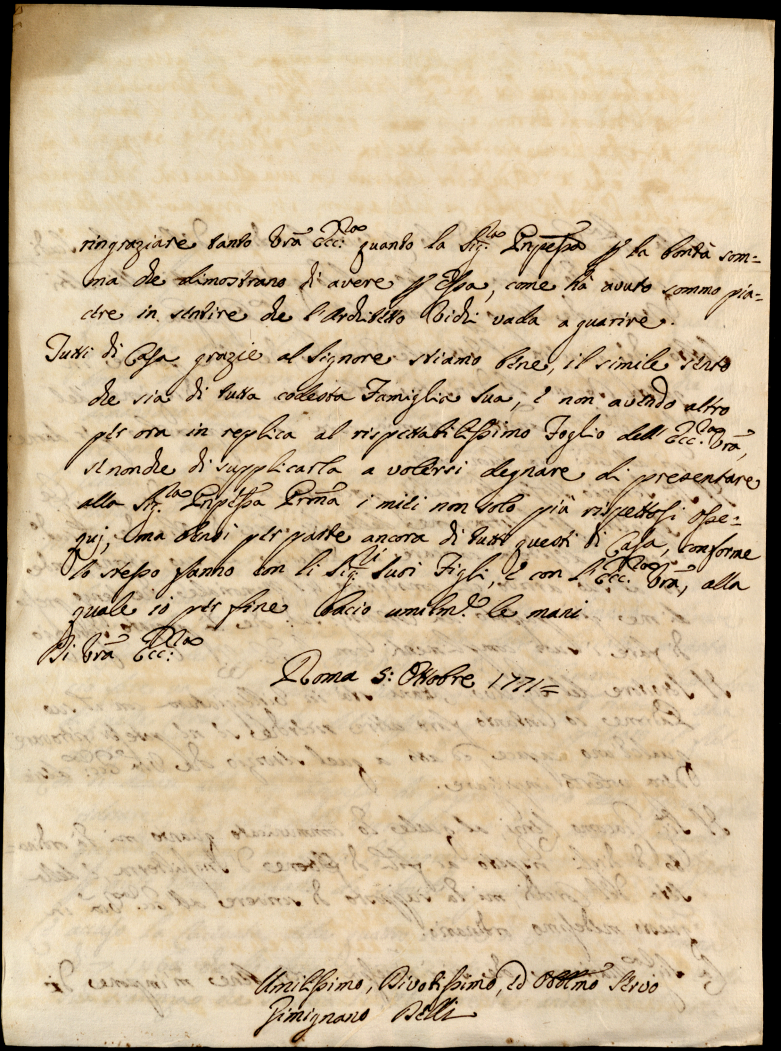 ringraziare tanto Vrã Ecc:za quanto la Sig:ra Prñpessa p la bontà som=
ma che dimostrano di avere p Essa, come hà avuto sommo pia=
cere in sentire che l'Architetto vada a guarire.
Tutti di Casa grazie al Signore stiamo bene, il simile sento
che sia di tutta codesta Famiglia Sua, e non avendo altro
per ora in replica al rispettabilissimo Foglio dell'Ecc:za Vrã,
senonche di supplicarla a volersi degnare di presentare
alla Sig:ra Prñpessa Prõña i miei non solo più rispettosi osse=
quj, ma bensi per parte ancora di tutti questi di Casa, conforme
lo stesso fanno con li Sig:ri Suoi Figli, e con l'Ecc:za Vrã, alla
quale io per fine bacio umilm:e le mani
Di Vrã Ecc:za
Roma 5: Ottobre 1771=
Umilissimo, Divotissimo, ed Obblmõ Servo
Gimignano Belli